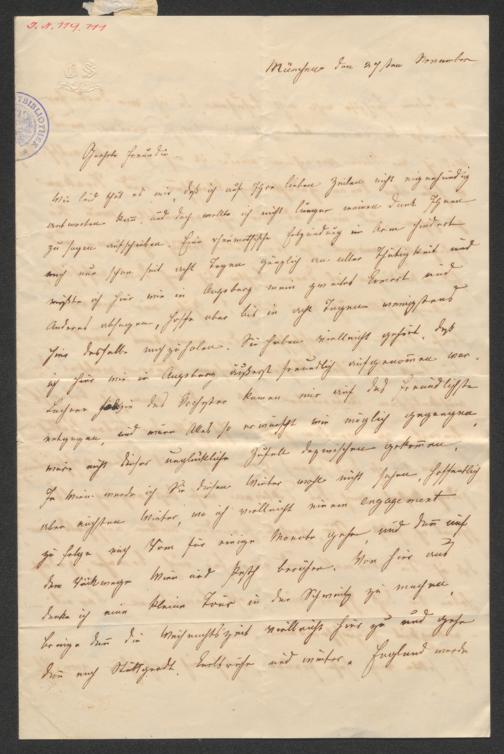 I.N. 119.111
BIBLIOTHEK
München den 27ten November
Geehrte Freundin
Wie leid thut es mir, daß ich auf Ihre lieben Zeilen nicht eigenhändig
antworten kann und doch wollte ich nicht länger meinen Dank Ihnen
zu sagen aufschieben. Eine rheumatische Entzündung im Arm hindert
mich nun schon seit acht Tagen gänzlich an aller Thätigkeit und
mußte ich hier wie in Augsburg mein zweites Concert und
Anderes absagen, hoffe aber bis in acht Tagen wenigstens
hier dasselbe nachzuholen. Sie haben vielleicht gehört, daß
ich hier wie in Augsburg äußerst freundlich aufgenommen war.
Lachner sowie das Orchester kamen mir auf das Freundlichste
entgegen, und wäre Alles so erwünscht wie möglich gegangen,
wäre nicht dieser unglückliche Zufall dazwischen gekommen.
In Wien werde ich Sie diesen Winter wohl nicht sehen, hoffentlich
aber nächsten Winter, wo ich vielleicht einem engagement
zu folge nach Rom für einige Monate gehe, und dann auf
dem Rückwege Wien und Pesth berühre. Von hier aus
denke ich eine kleine Tour in der Schweitz zu machen,
bringe dann die Weihnachtszeit vielleicht hier zu und gehe
dann nach Stuttgardt, Carlsruhe und weiter. England werde